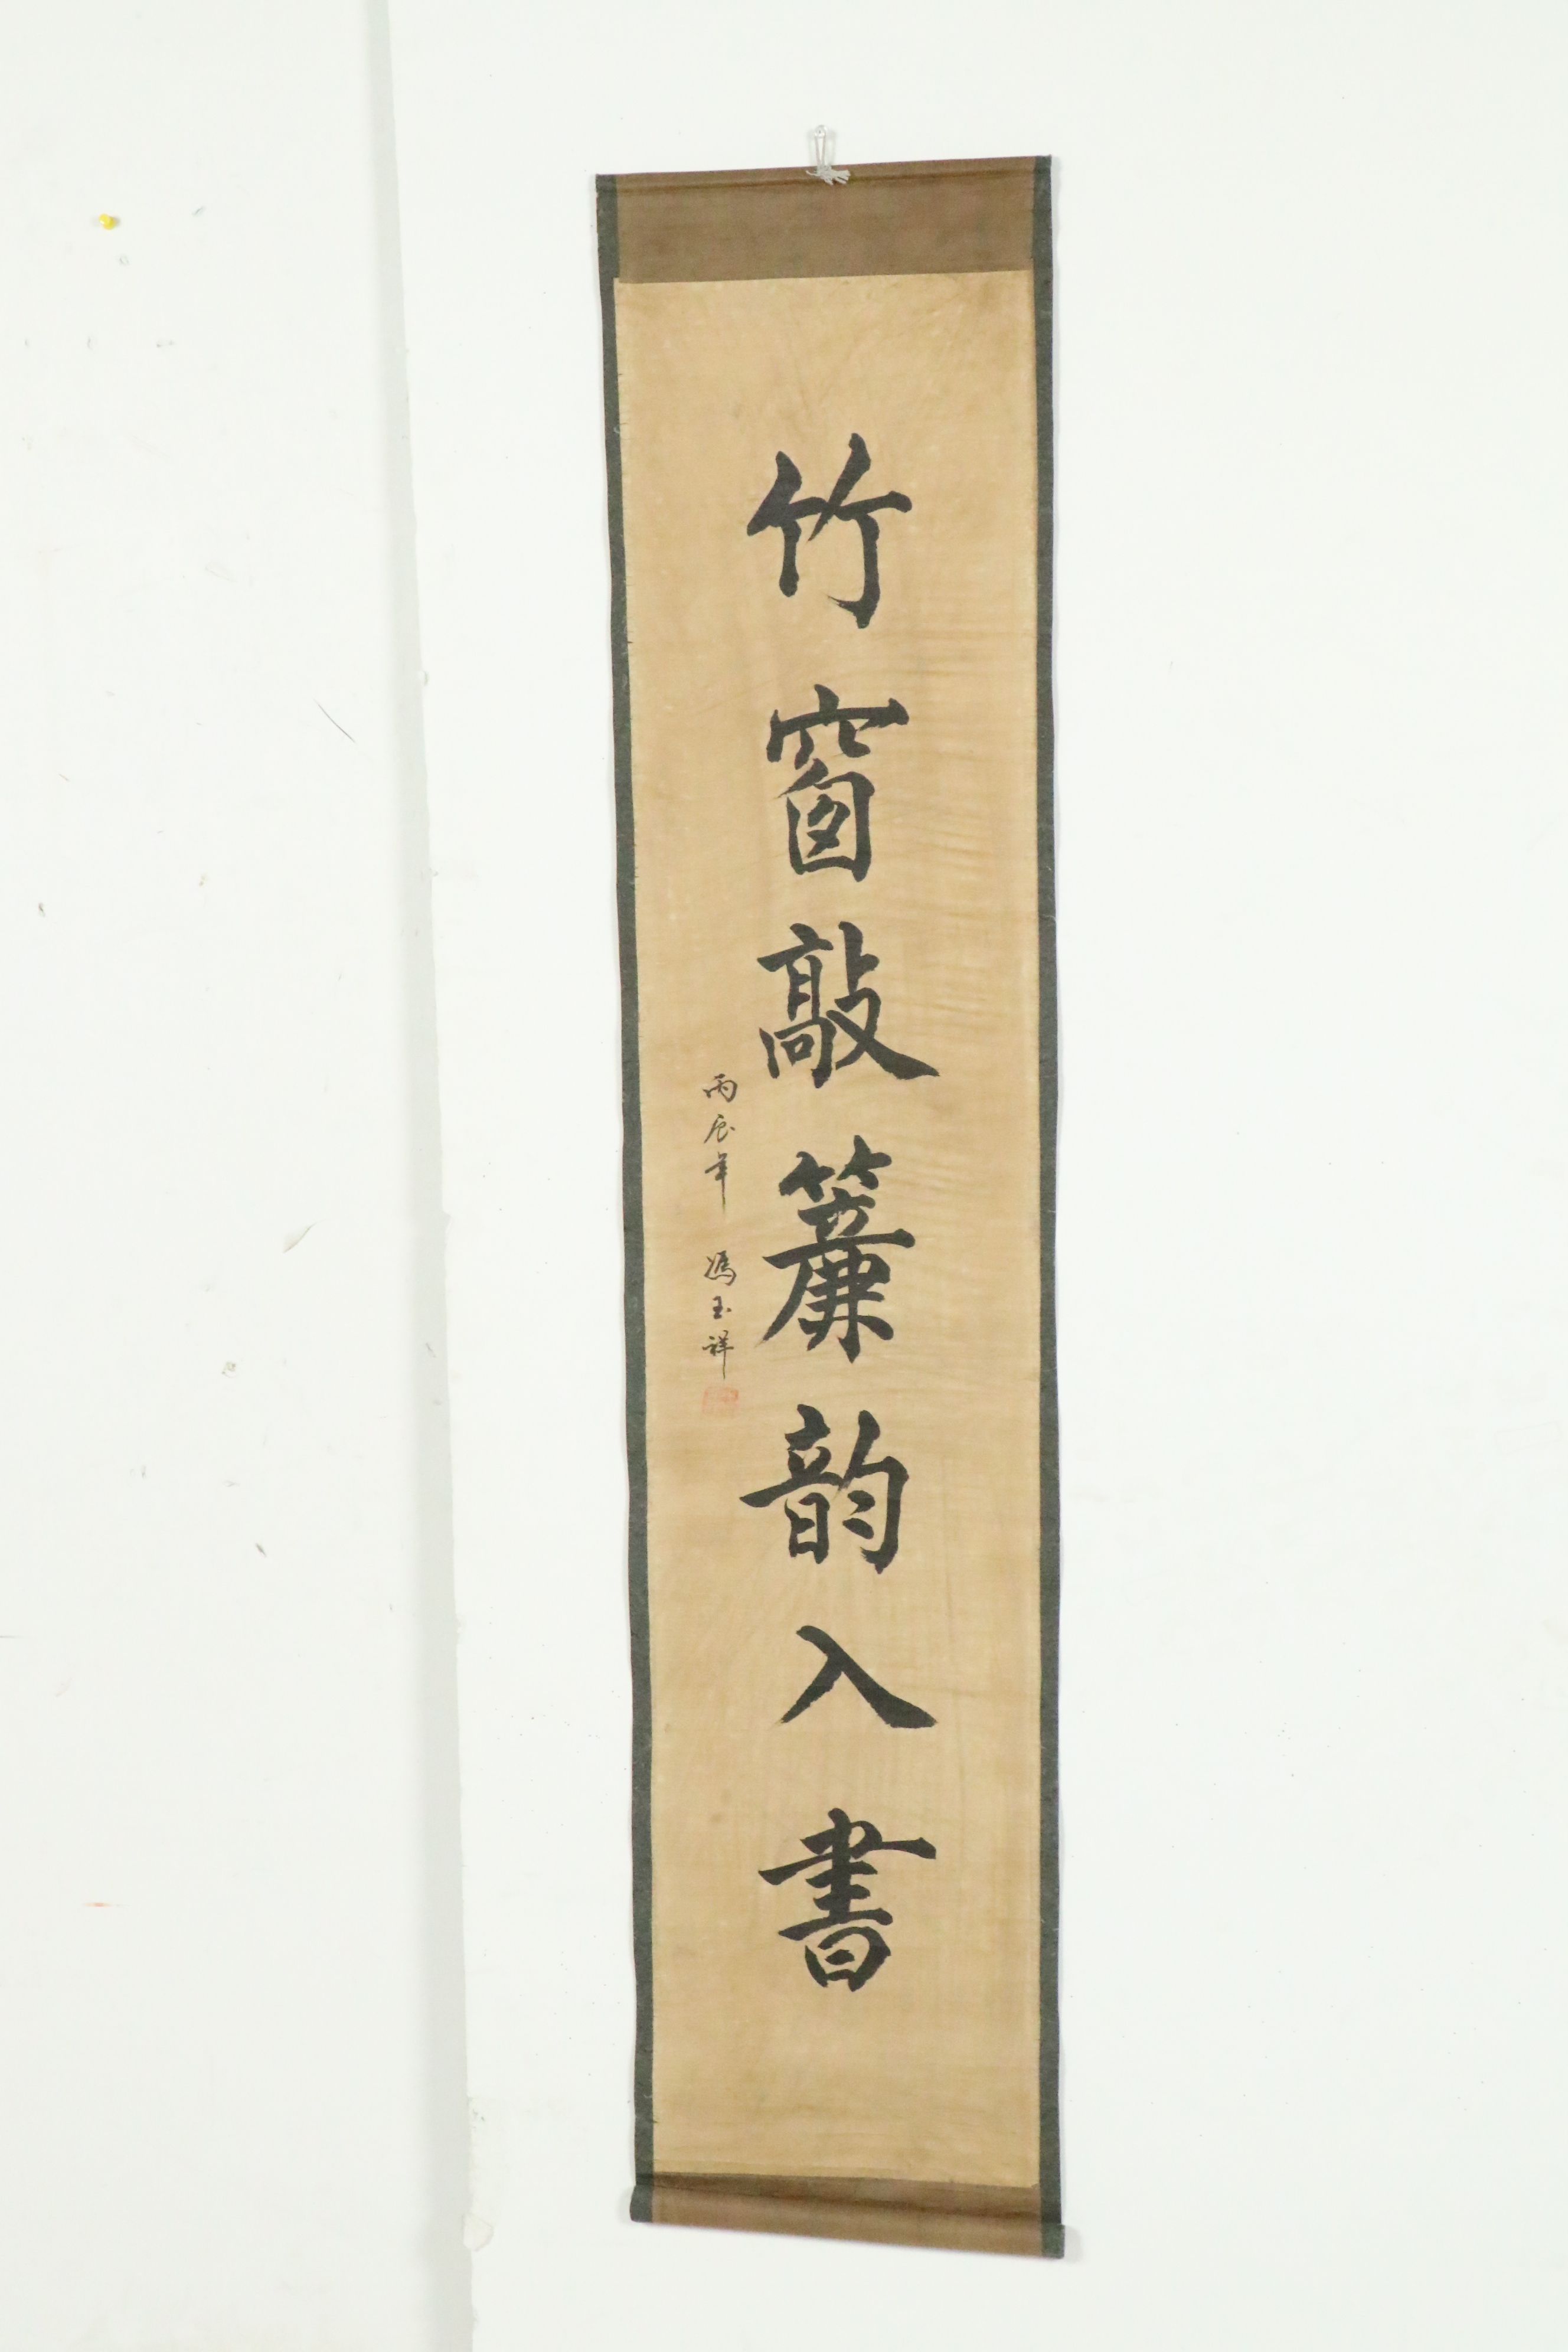 竹窗敲簾韵入書
丙辰年 馮玉祥